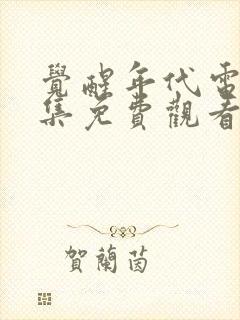 覺醒年代電
集免費觀看
賀蘭茵